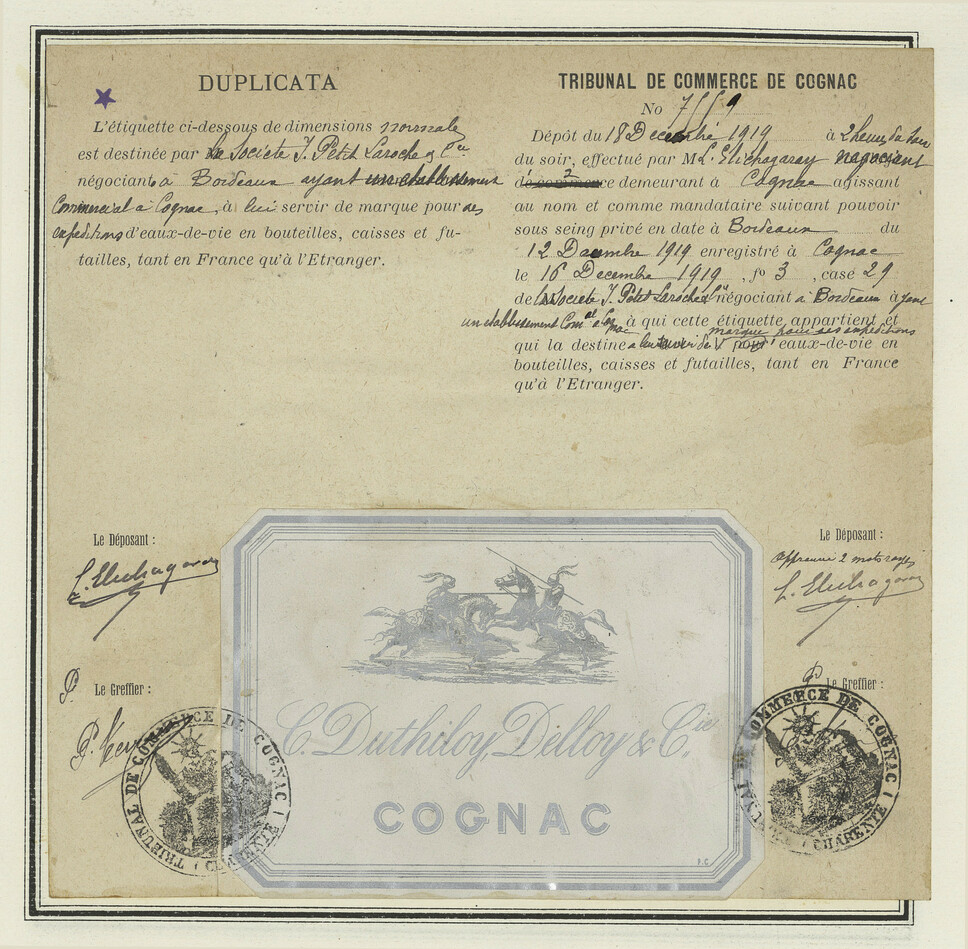 DUPLICATA
L'étiquette ci-dessous de dimensions normale
est destinée par la Societe J. Petit Laroche & Cie
négociants à Bordeaux ayant un établissement
Commercial à Cognac, à lui servir de marque pour ses
expeditions d'eaux-de-vie en bouteilles, caisses et fu-
tailles, tant en France qu'à l'Etranger.
TRIBUNAL DE COMMERCE DE COGNAC
No
Dépôt du 18 Decembre 1919 à 2 heures
du soir, effectué par M L. Etichagaray negociant
demeurant à Cognac agissant
au nom et comme mandataire suivant pouvoir
sous seing privé en date à Bordeaux du
12 Decembre 1919 enregistré à Cognac
le 16 Decembre 1919, fo 3, case 29
de la Societe J. Petit Laroche négociant à Bordeaux ayant
un etablissement à qui cette étiquette appartient et
marque pour ses expeditions
qui la destine a lui servir de eaux-de-vie en
bouteilles, caisses et futailles, tant en France
qu'à l'Etranger.
Le Déposant :
Le Déposant :
Approuvé 2 mots rayés
P. Le Greffier :
P. Le Greffier :
TRIBUNAL DE COMMERCE DE COGNAC (CHARENTE)
C. Duthiloy, Delloy & Cie
COGNAC
TRIBUNAL DE COMMERCE DE COGNAC (CHARENTE)